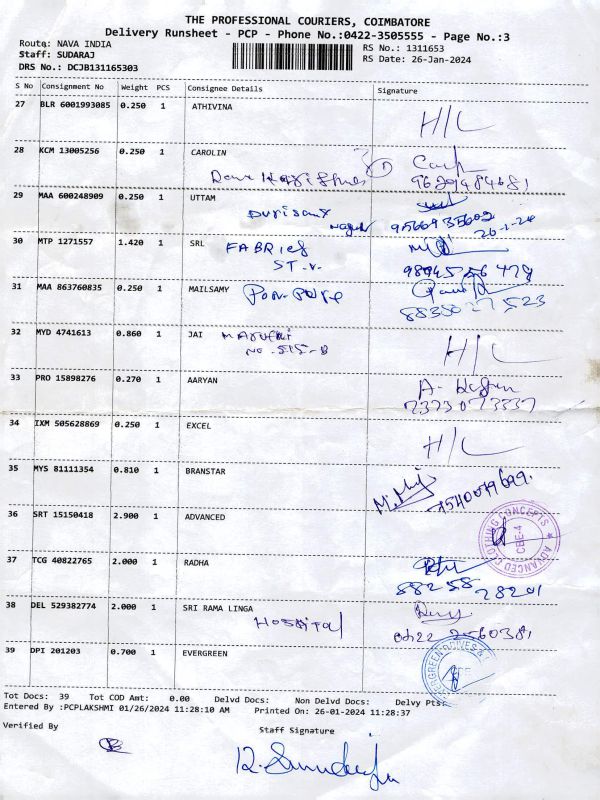 THE PROFESSIONAL COURIERS, COIMBATORE
Delivery Runsheet - PCP - Phone No.:0422-3505555 - Page No.:3
Route: NAVA INDIA
RS No.: 1311653
Staff: SUDARAJ
RS Date: 26-Jan-2024
DRS No.: DCJB131165303
S No Consignment No Weight PCS Consignee Details Signature
27 BLR 6001993085 0.250 1 ATHIVINA H/L
28 KCM 13005256 0.250 1 CAROLIN
29 MAA 600248909 0.250 1 UTTAM
26-1-24
30 MTP 1271557 1.420 1 SRL FABRICS
ST.V.
31 MAA 863760835 0.250 1 MAILSAMY
32 MYD 4741613 0.860 1 JAI MARUTHI H/L
NO. 515-B
33 PRO 15898276 0.270 1 AARYAN
34 IXM 505628869 0.250 1 EXCEL H/L
35 MYS 81111354 0.810 1 BRANSTAR
36 SRT 15150418 2.900 1 ADVANCED
ADVANCED CLOTHING CONCEPTS
CBE-4
37 TCG 40822765 2.000 1 RADHA
88258 28201
38 DEL 529382774 2.000 1 SRI RAMA LINGA
HOSPITAL 0422 2560381
39 DPI 201203 0.700 1 EVERGREEN
Tot Docs: 39 Tot COD Amt: 0.00 Delvd Docs: Non Delvd Docs: Delvy Pts:
Entered By :PCPLAKSHMI 01/26/2024 11:28:10 AM Printed On: 26-01-2024 11:28:37
Verified By
Staff Signature